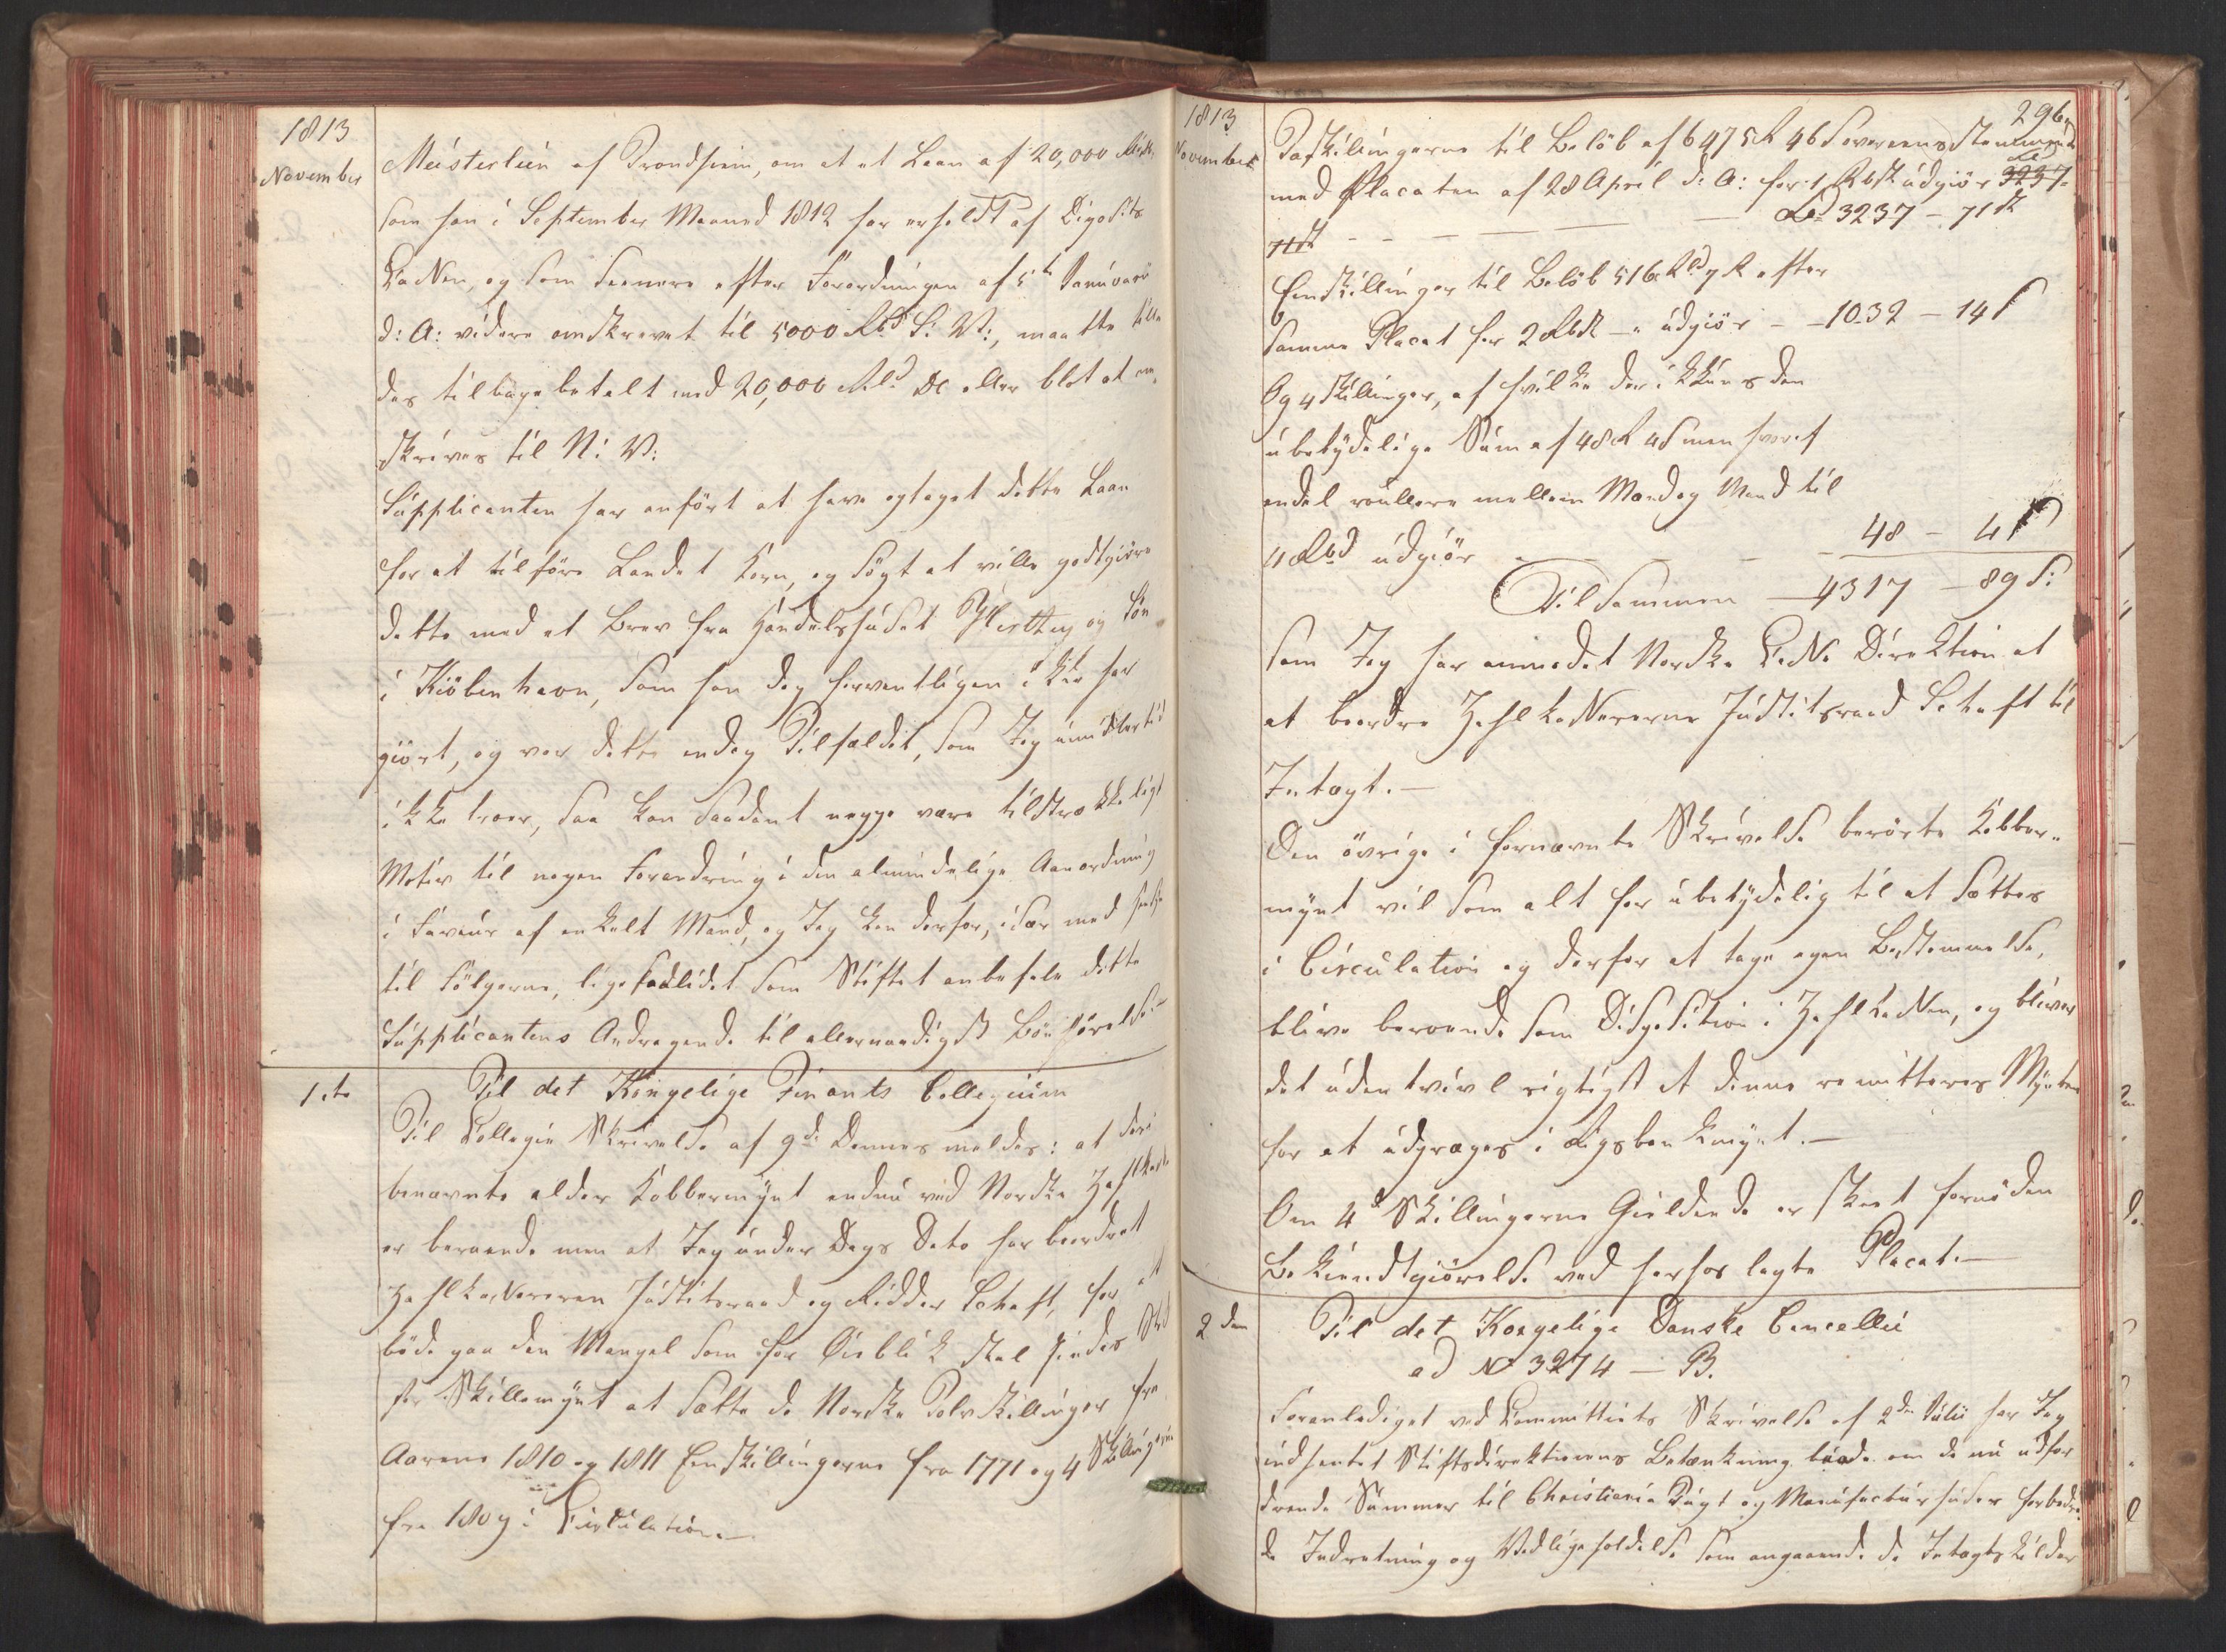 1813
November
Meisterlein af Trondhiem, om at et Laan af 20,000 Rdlr,
som han i September Maaned 1812 har erholdt af Deposito
Cassen, og som senere efter Forordningen af 5te Januarii
d: A: videre omskrevet til 5000 Rbd S: V:, maatte tilla
des tilbagebetalt med 20,000 Rd DC eller blot at om,
skrives til N: V:
Supplicanten har anført at have optaget dette Laan
for at tilføre Landet Korn, og søgt at ville godtgiøre
dette med et Brev fra Handelshuset og Søn
i Kiøbenhavn, som han dog formentligen ikke har
giort, og var dette endog Tilfældet, som Jeg imidlertid
ikke troer, saa kan saadant neppe være tilstrækkeligt
Motiv til nogen Forandring i den almindelige Anordning
i Faveur af enkelt Mand, og Jeg kan derfor, især med Hensyn
til Følgerne, ligesaalidet som Stiftet anbefale dette
Supplicantens Andragende til allernaadigst Bønhørelse.
1ste
Til det Kongelige Finants Collegium
Til Collegie Skrivelse af 9de Dennes meldes: at deri
benævnte ælder Kobbermynt endnu ved Norske Zahlkasse
er beroende men at Jeg under Dags Dato har beordret
Zahlkasserer Justitsraad og Ridder Schaft, for at
bøde paa den Mangel som for Øieblik skal findes Sted
for Skillemynt at sætte de Norske Tolvskillinger fra
Aarene 1810 og 1811 Eenskillingerne fra 1771 og 4 Skillingerne
fra 1809 i Circulation.
1813
November
296.
Toskillingerne til Beløb af 6475 R 46 s overeensstemmende
med Placaten af 28 April d: A: for 1 Rbsk udgiør 3237-
71 sk - - - - - 3237 - 71 sk
Eenskillinger til Beløb 516 Rd 7 s efter
samme Placat for 2 Rbsk - udgiør - - 1032 - 14 s
Og 4 skillinger, af hvilke der i Kkun den
ubetydelige Sum af 48 R 4 s men hvoraf
endel roullere mellem Mand og Mand til
4 Rbs udgiør - - - 48 - 4 s
Tilsammen - 4317 - 89 s:
som Jeg har anmodet Norske Direktion at
at beordre Zahlkassererne Justitsraad Schaft til
Intægt.-
Den øvrige i fornævnte Skrivelse berørte Kobber-
mynt vil som alt for ubetydelig til at sættes
i Circulation og derfor at tage egen Bestemmelse,
blive beroende som Disposition i Zahlkassen, og bliver
det uden tvivl rigtigst at denne remitteres Mynten
for at udpræges i Rigsbankmynt.-
Om 4 Skillingernes Gieldende er skeet fornøden
Bekiendtgiørelse ved herhos lagte Placat.-
2den
Til det Kongelige Danske Cancellie
ad No 3274 - B.
Foranlediget ved Committeets Skrivelse af 2den Julii har Jeg
indhentet Stiftsdirektionens Betænkning baade om de nu udfor
drende Summer til Christiania Tugt og Manufacturhuses forbedre-
de Indretning og Vedligeholdelse som angaaende de Intægtskilder